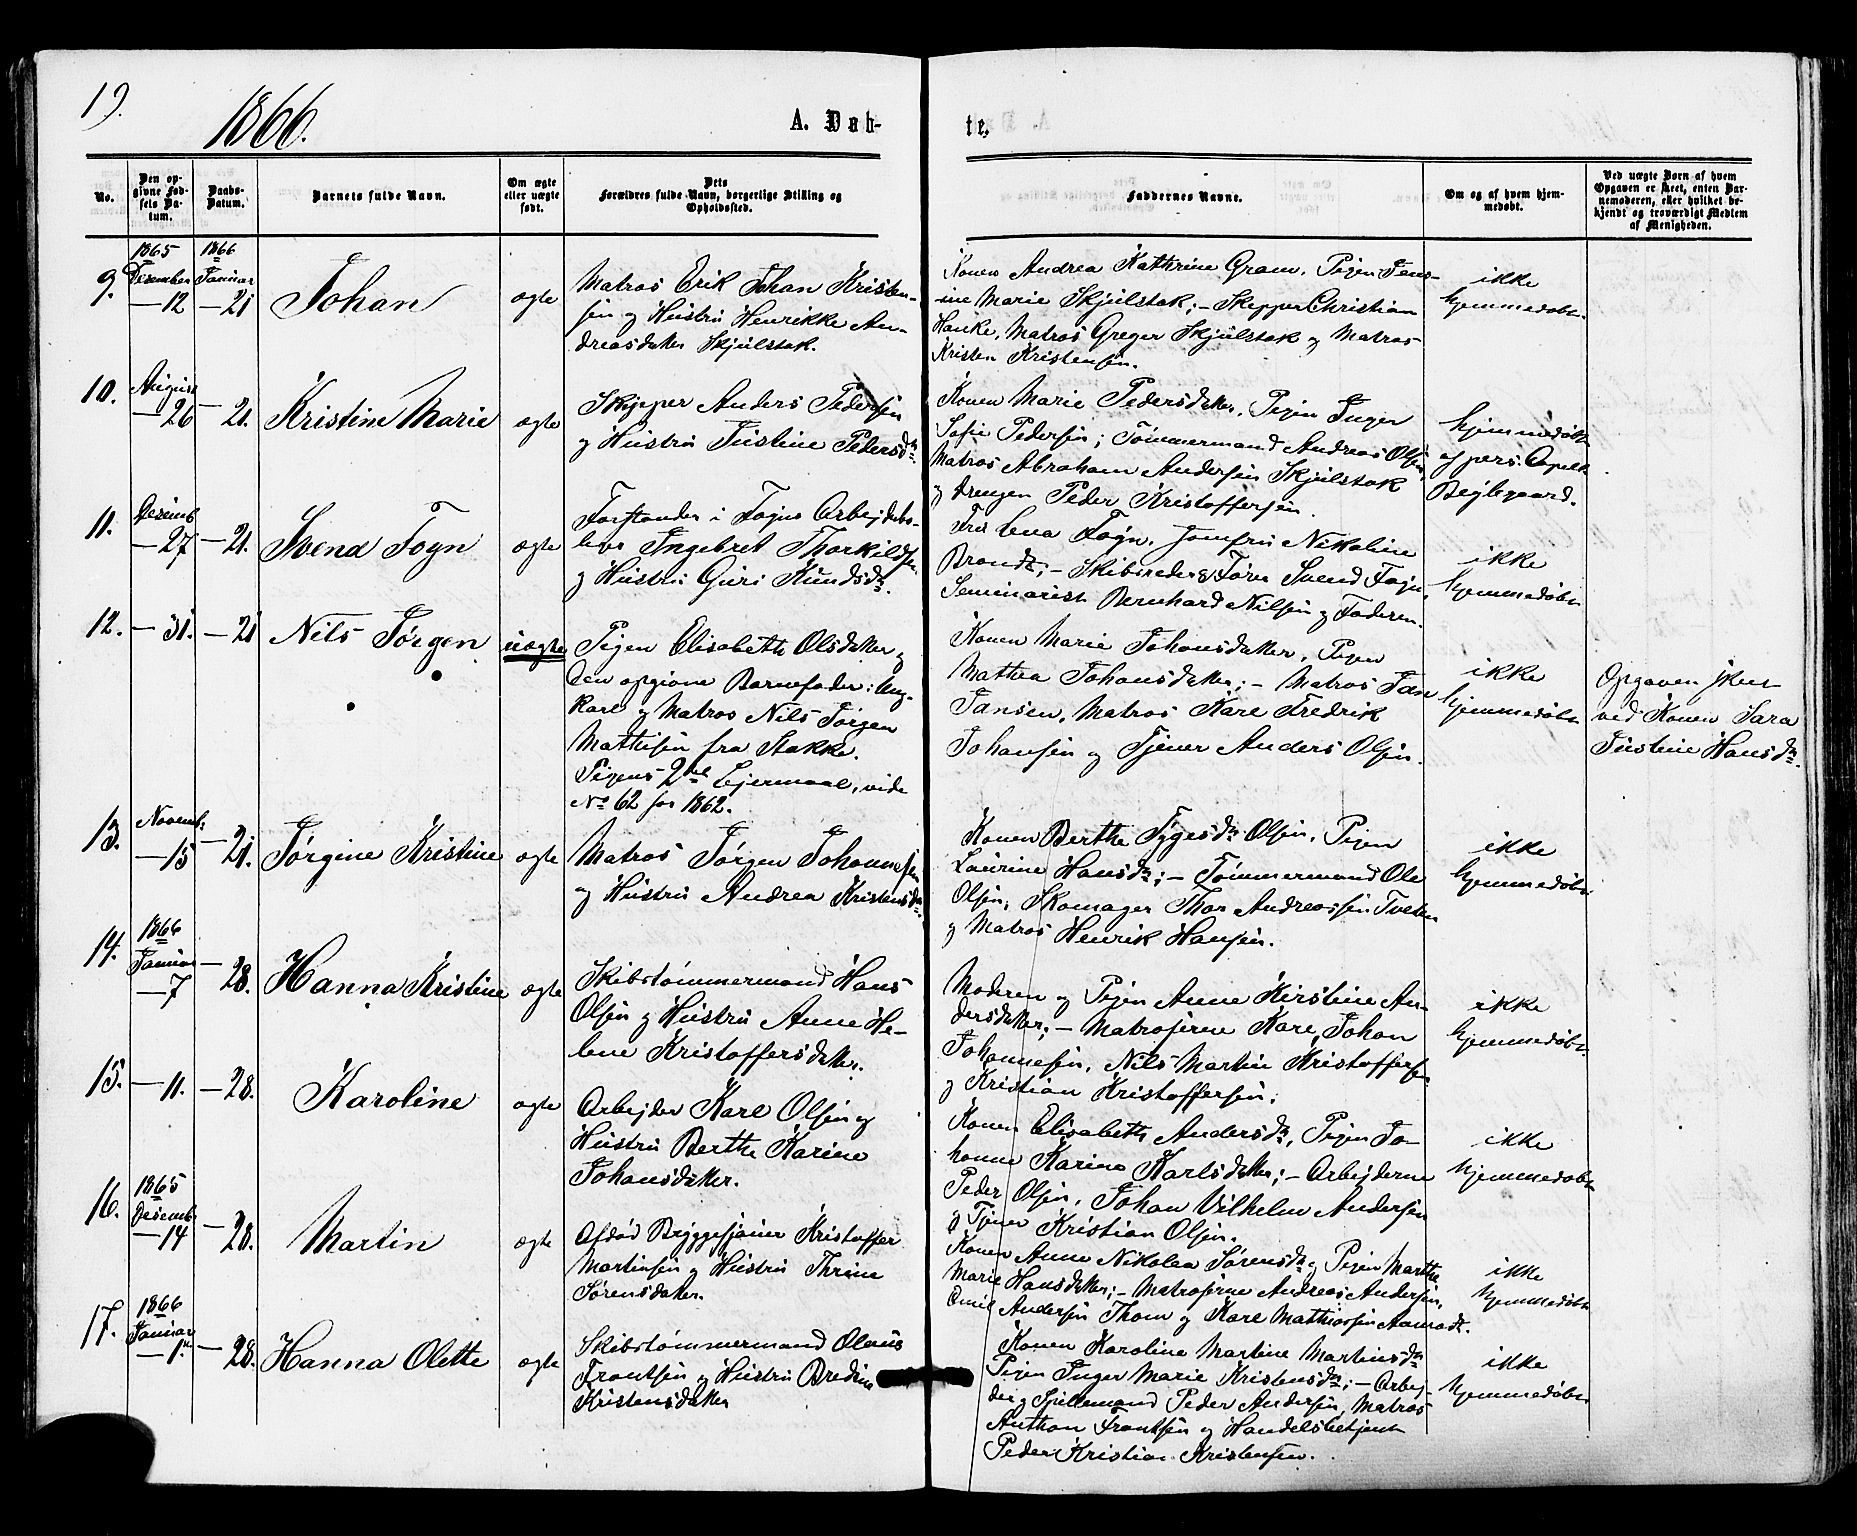 19.
1866.
A. Døb-
te.
No.
Den op-
givne Fød-
sels Da-
tum.
Daabs-
Datum.
Barnets fulde Navn.
Om ægte
eller uægte
født.
Dets
Forældres fulde Navn, borgerlige Stilling og
Opholdssted.
Faddernes Navne.
Om og af hvem hjem-
medøbt.
Ved uægte Børn af hvem
Opgaven er skeet, enten Bar-
nemoderen, eller hvilket be-
kjendt og troværdigt Medlem
af Menigheden.
9.
1865
Desember
— 12
1866
Januar
— 21
Johan
ægte
Matros Erik Johan Kristen-
sen og Hustru Henrikke An-
dreasdatter Skjulstok.
Konen Andrea Kathrine Gram, Pigen Jens-
ine Marie Skjulstok; – Skipper Christian
Hanke, Matros Greger Skjulstok og Matros
Kristen Kristensen.
ikke
hjemmedøbt
10.
August
— 26
— 21.
Kristine Marie
ægte
Skipper Anders Pedersen
og Hustru Justine Pedersdtr
Konen Marie Pedersdatter, Pigen Inger
Sofie Pedersen; Tømmermand Andreas Olsen,
Matros Abraham Andersen Skjulstok
og Drengen Peder Kristoffersen
hjemmedøbt
af pers. Capell.
Bejlegaard.
11.
Desemb
— 27
— 21.
Svend Foyn
ægte
Forstander i Foyns Arbejder-
Ingebret Thorkildsen
og Hustru Guri Knudsdtr.
Fru Lena Foyn, Jomfru Nikoline
Brandt; – Skibsreder Svend Foyn,
Seminarist Bernhard Nilsen og Faderen.
ikke
hjemmedøbt
12.
— 31.
— 21
Nils Jørgen
uægte
Pigen Elisabeth Olsdatter og
den opgivne Barnefader: Ung-
karl og Matros Nils Jørgen
Mathisen fra Stokke.
Pigens 2det Lejermaal, vide
No 62 for 1862.
Konen Marie Johansdatter, Pigen
Mathea Johansdatter; – Matros Jan
Jansen, Matros Karl Fredrik
Johansen og Tjener Anders Olsen.
ikke
hjemmedøbt
Opgaven skeet
ved Konen Sara
Justine Hansdtr.
13.
Novemb:
— 15
— 21.
Jørgine Kristine
ægte
Matros Jørgen Johannesen
og Hustru Andrea Kristensdtr
Konen Berthe Tygesdtr Olsen, Pigen
Laurine Hansdtr; – Tømmermand Ole
Olsen, Skomager Thor Andreassen Tveten
og Matros Henrik Hansen.
ikke
hjemmedøbt
14.
1866
Januar
— 7
— 28.
Hanna Kristine
ægte
Skibstømmermand Hans
Olsen og Hustru Anne He-
lene Kristoffersdatter.
Moderen og Pigen Anne Kirstine An-
dersdatter; – Matroserne Karl Johan
Johannesen, Nils Martin Kristoffersen
og Kristian Kristoffersen;
ikke
hjemmedøbt
15.
— 11.
— 28.
Karoline
ægte
Arbejder Karl Olsen og
Hustru Berthe Karine
Johansdatter.
Konen Elisabeth Andersdtr, Pigen Jo-
hanne Karine Karlsdatter; – Arbejderne
Peder Olsen, Johan Vilhelm Andersen
og Tjener Kristian Olsen.
ikke
hjemmedøbt
16.
1865
Desemb
— 14
— 28.
Martin
ægte
Afdød Bryggesjauer Kristoffer
Martinsen og Hustru Thrine
Sørensdatter.
Konen Anne Nikolea Sørensdtr og Pigen Marthe
Marie Hansdatter; – Matroserne Andreas Andersen,
Emil Andersen Thom og Karl Mathiassen Aamodt.
ikke
hjemmedøbt
17.
1866
Januar
— 1ste
— 28.
Hanna Olette
ægte
Skibstømmermand Olaus
Frantsen og Hustru Bredine
Kristensdatter
Konen Karoline Martine Martinsdtr
Pigen Inger Marie Kristensdtr; – Arbej-
der og Spillemand Peder Andersen, Matros
Anthon Frantsen og Handelsbetjent
Peder Kristian Kristensen.
ikke
hjemmedøbt